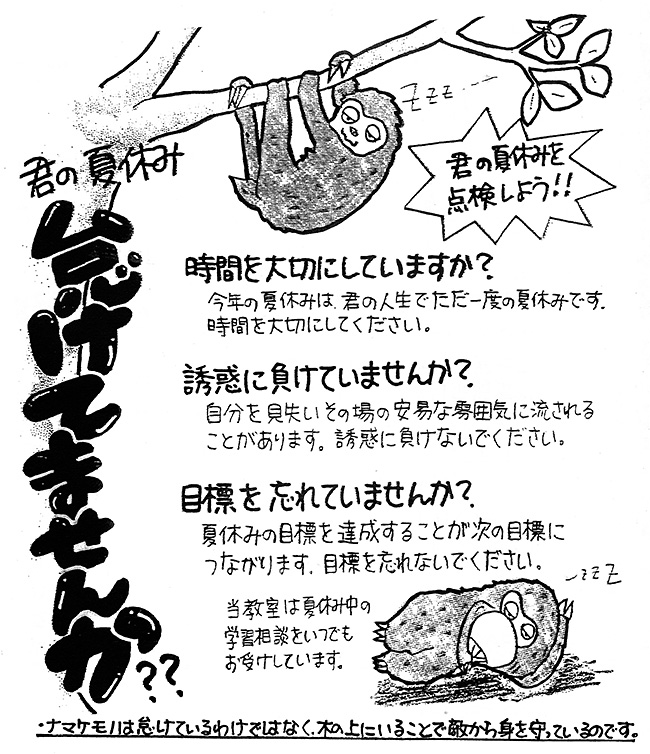 君の夏休み
怠けてませんか??
ZZZ
君の夏休みを
点検しよう!!
時間を大切にしていますか?
今年の夏休みは、君の人生でただ一度の夏休みです。
時間を大切にしてください。
誘惑に負けていませんか?
自分を見失いその場の安易な雰囲気に流される
ことがあります。誘惑に負けないでください。
目標を忘れていませんか?
夏休みの目標を達成することが次の目標に
つながります。目標を忘れないでください。
ZZZ
当教室は夏休み中の
学習相談をいつでも
お受けしています。
・ナマケモノは怠けているわけではなく、木の上にいることで敵から身を守っているのです。